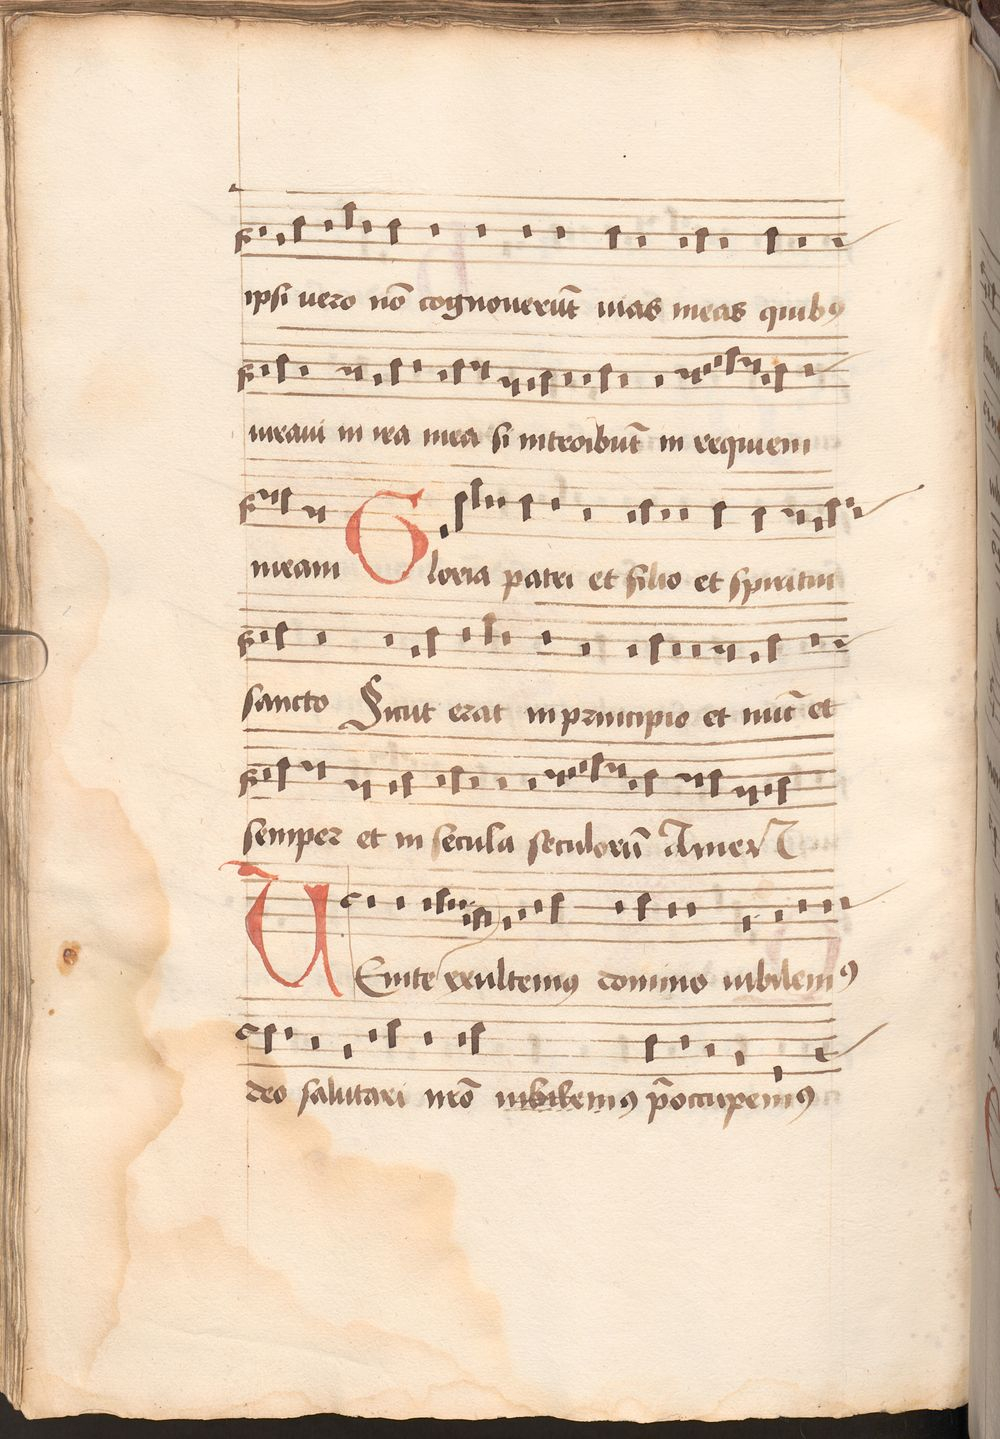 ipsi vero nō cognoverūt vias meas quibꝰ
iuravi in ira mea si introibūt in requiem
meam Gloria patri et filio et spiritui
sancto Sicut erat in principio et nūc et
semper et in secula seculorū Amen
Venite exultemꝰ domino iubilemꝰ
deo salutari nrō iubilemꝰ p̄occupemꝰ